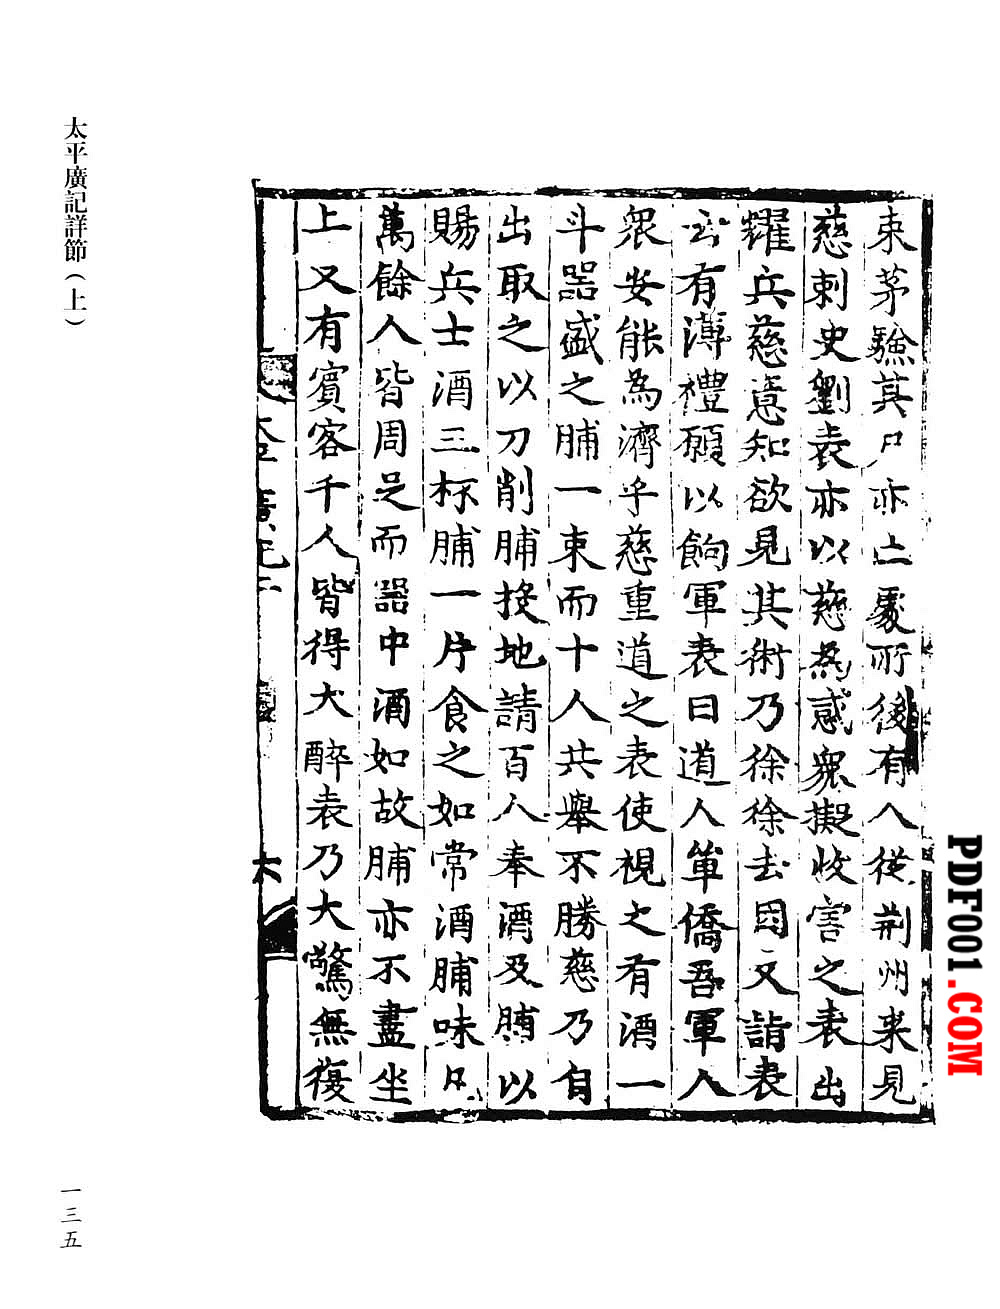 束茅驗其尸亦亡處所後有人從荆州来見
慈刺史劉表亦以慈為惑衆擬收害之表出
耀兵慈意知欲見其術乃徐徐去因又詣表
云有薄禮願以餉軍表曰道人單僑吾軍人
衆安能為濟乎慈重道之表使視之有酒一
斗器盛之脯一束而十人共舉不勝慈乃自
出取之以刀削脯投地請百人奉酒及脯以
賜兵士酒三杯脯一片食之如常酒脯味凡
萬餘人皆周足而器中酒如故脯亦不盡坐
上又有賓客千人皆得大醉表乃大驚無復
六
太平廣記詳節（上）
一三五
PDF001.COM